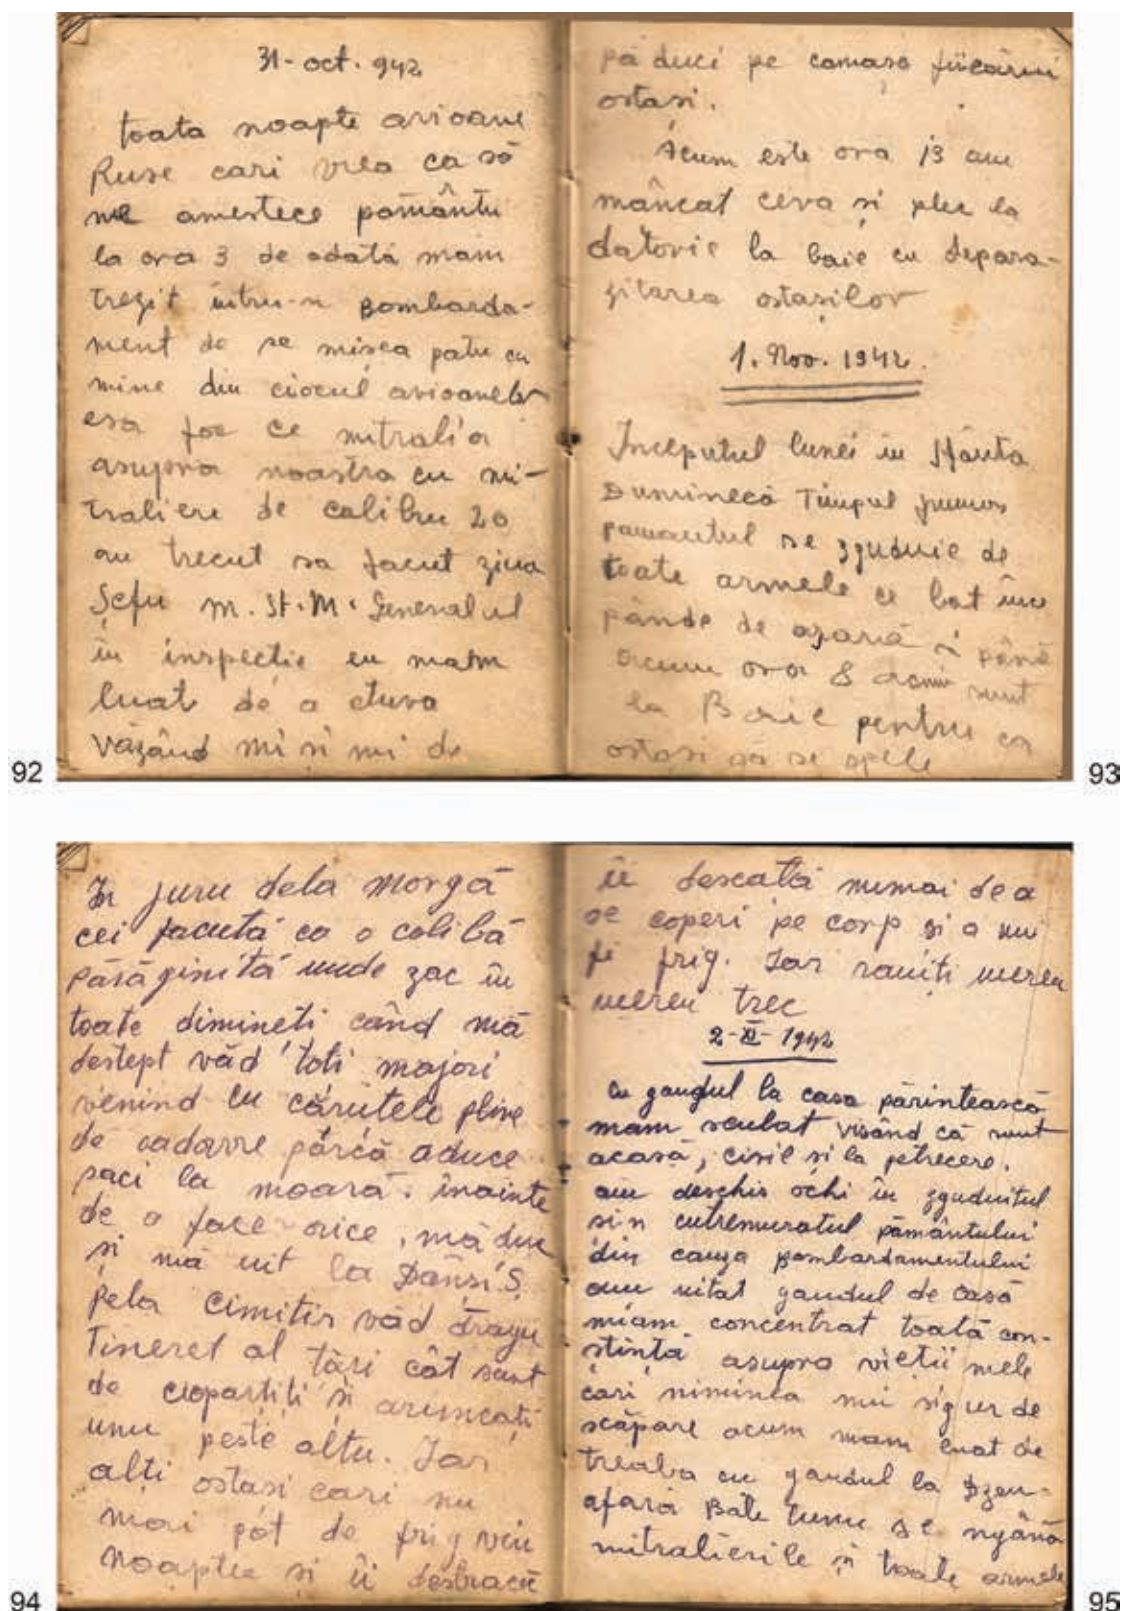 31-oct. 942
toata noapte avioane
Ruse cari vrea ca să
ne amestece pomântu
la ora 3 de odată mam
trezit intru-n Bombarda-
ment de se mișca patu cu
mine din ciocul avioanelor
esa foc ce mitralia
asupra noastra cu mi-
traliere de calibru 20
au trecut sa facut ziua
Șefu M. St. M. Generalul
în inspectie eu mam
luat de a etuva
văzând mi si mi de
92
pă duci pe camasa fiecărui
ostasi.
Acum este ora 13 am
mâncat ceva si plec la
datorie la baie cu depara-
zitarea ostasilor
1. Nov. 1942.
Inceputul lunei in Sfânta
Duminecă Timpul frumos
pamantul se zguduie de
toate armele ce bat ince
pănde de asară si până
acum ora 8 dimi sunt
la Baie pentru ca
ostasi sa se spele
93
In juru dela Morgă
cei facută ca o colibă
părăginită unde zac în
toate dimineti când mă
destept văd toti majori
venind cu cărutele pline
de cadavre părcă aduce
saci la moară. înainte
de a face orice, mă duc
si mă uit la Dânsi. Ș
pela cimitir văd dragu
Tineret al tări cât sunt
de ciopartiți si aruncați
unu peste altu. Iar
alti ostasi cari nu
mai pot de frig vin
noaptea si îi desbracă
94
îi descată numai de a
se coperi pe corp si a nu
fi frig. Iar raniți mereu
mereu trec
2-XI-1942
Cu gandul la casa părintească
mam sculat visând că sunt
acasă, civil si la petrecere.
am deschis ochi în zguduitul
sin cutremuratul pământului
din cauza Bombardamentului
am uitat gandul de casă
miam concentrat toată con-
stința asupra vietii mele
cari niminea nui sigur de
scăpare acum mam luat de
treaba cu gandul la Dzeu-
afara Bate tunu se ngână
mitralierile si toate armele
95